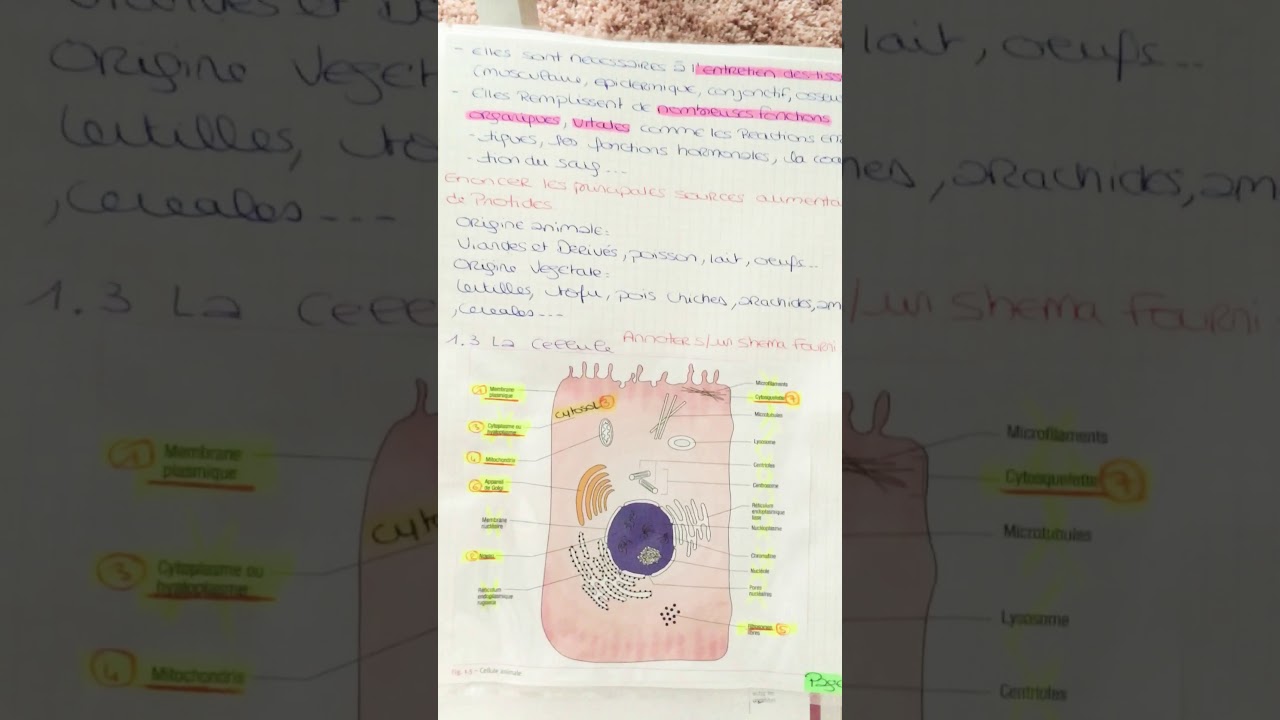 - Elles sont necessaires à l'entretien des tiss
(musculaire, epidermique, conjonctif, osseu
- Elles Remplissent de nombreuses fonctions
organiques, vitales comme les Reactions en
tiques, les fonctions hormonales, la coa
-tion du sang...
Enoncer les principales sources alimenta
de Protides
Origine animale:
Viandes et Derivés, poisson, lait, oeufs...
Origine Vegetale:
Lentilles, tofu, pois chiches, arachides, am
, cereales---
1.3 La Cellule Annoter s/un shema fourni
1 Membrane plasmique
cytosol 2
3 Cytoplasme ou hyaloplasme
4 Mitochondrie
6 Appareil de Golgi
Membrane nucléaire
Noyau
Réticulum endoplasmique rugueux
Microfilaments
Cytosquelette 7
Microtubules
Lysosome
Centrioles
Centrosome
Réticulum endoplasmique lisse
Nucléoplasme
Chromatine
Nucléole
Pores nucléaires
Ribosomes libres 5
Fig. 1.5 - Cellule animale
Page